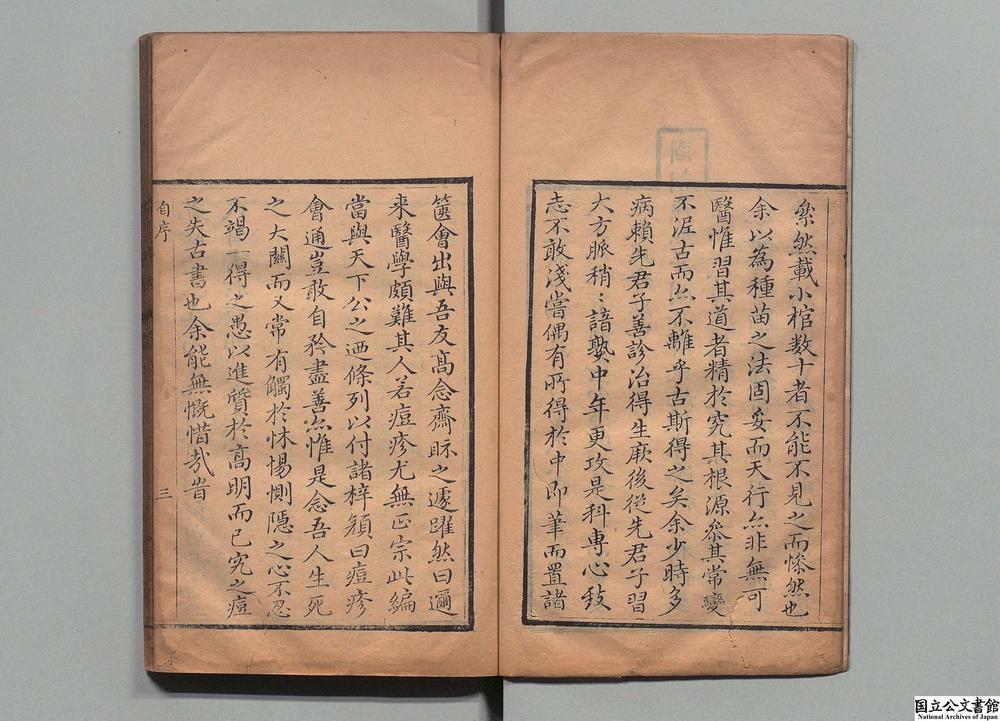 纍然載小棺数十者不能不見之而慘然也
余以為種苗之法固妥而天行亦非無可
醫惟習其道者精於究其根源叅其常變
不泥古而亦不離乎古斯得之矣余少時多
病賴先君子善診治得生厥後從先君子習
大方脈稍〻諳藝中年更攻是科專心致
志不敢淺嘗偶有所得於中即筆而置諸
篋會出與吾友高念齋眎之遽躍然曰邇
来醫學頗難其人若痘疹尤無正宗此編
當與天下公之迺條列以付諸梓顏曰痘疹
會通豈敢自矜盡善亦惟是念吾人生死
之大關而又常有觸於怵惕惻隱之心不忍
不竭一得之愚以進質於高明而已究之痘
之失古書也余能無慨惜哉旹
自序
三
国立公文書館
National Archives of Japan